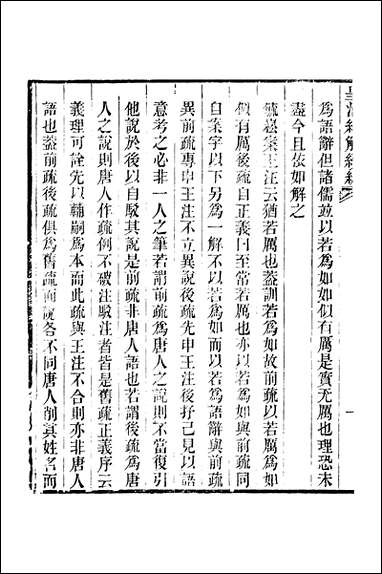 皇清經解續編
一
爲語辭但諸儒並以若爲如如似有厲是實无厲也理恐未
盡今且依如解之
毓崧案王注云猶若厲也蓋訓若爲如故前疏以若厲爲如
似有厲後疏自正義曰至當若厲也亦以若爲如與前疏同
自案字以下另爲一解不以若爲如而以若爲語辭與前疏
異前疏專申王注不立異說後疏先申王注後抒己見以語
意考之必非一人之筆若謂前疏爲唐人之說則不當復引
他說於後以自駁其說是前疏非唐人語也若謂後疏爲唐
人之說則唐人作疏例不破注駁注者皆是舊疏正義序云
義理可詮先以輔嗣爲本而此疏與王注不合則亦非唐人
語也蓋前疏後疏俱爲舊疏而說各不同唐人削其姓名而